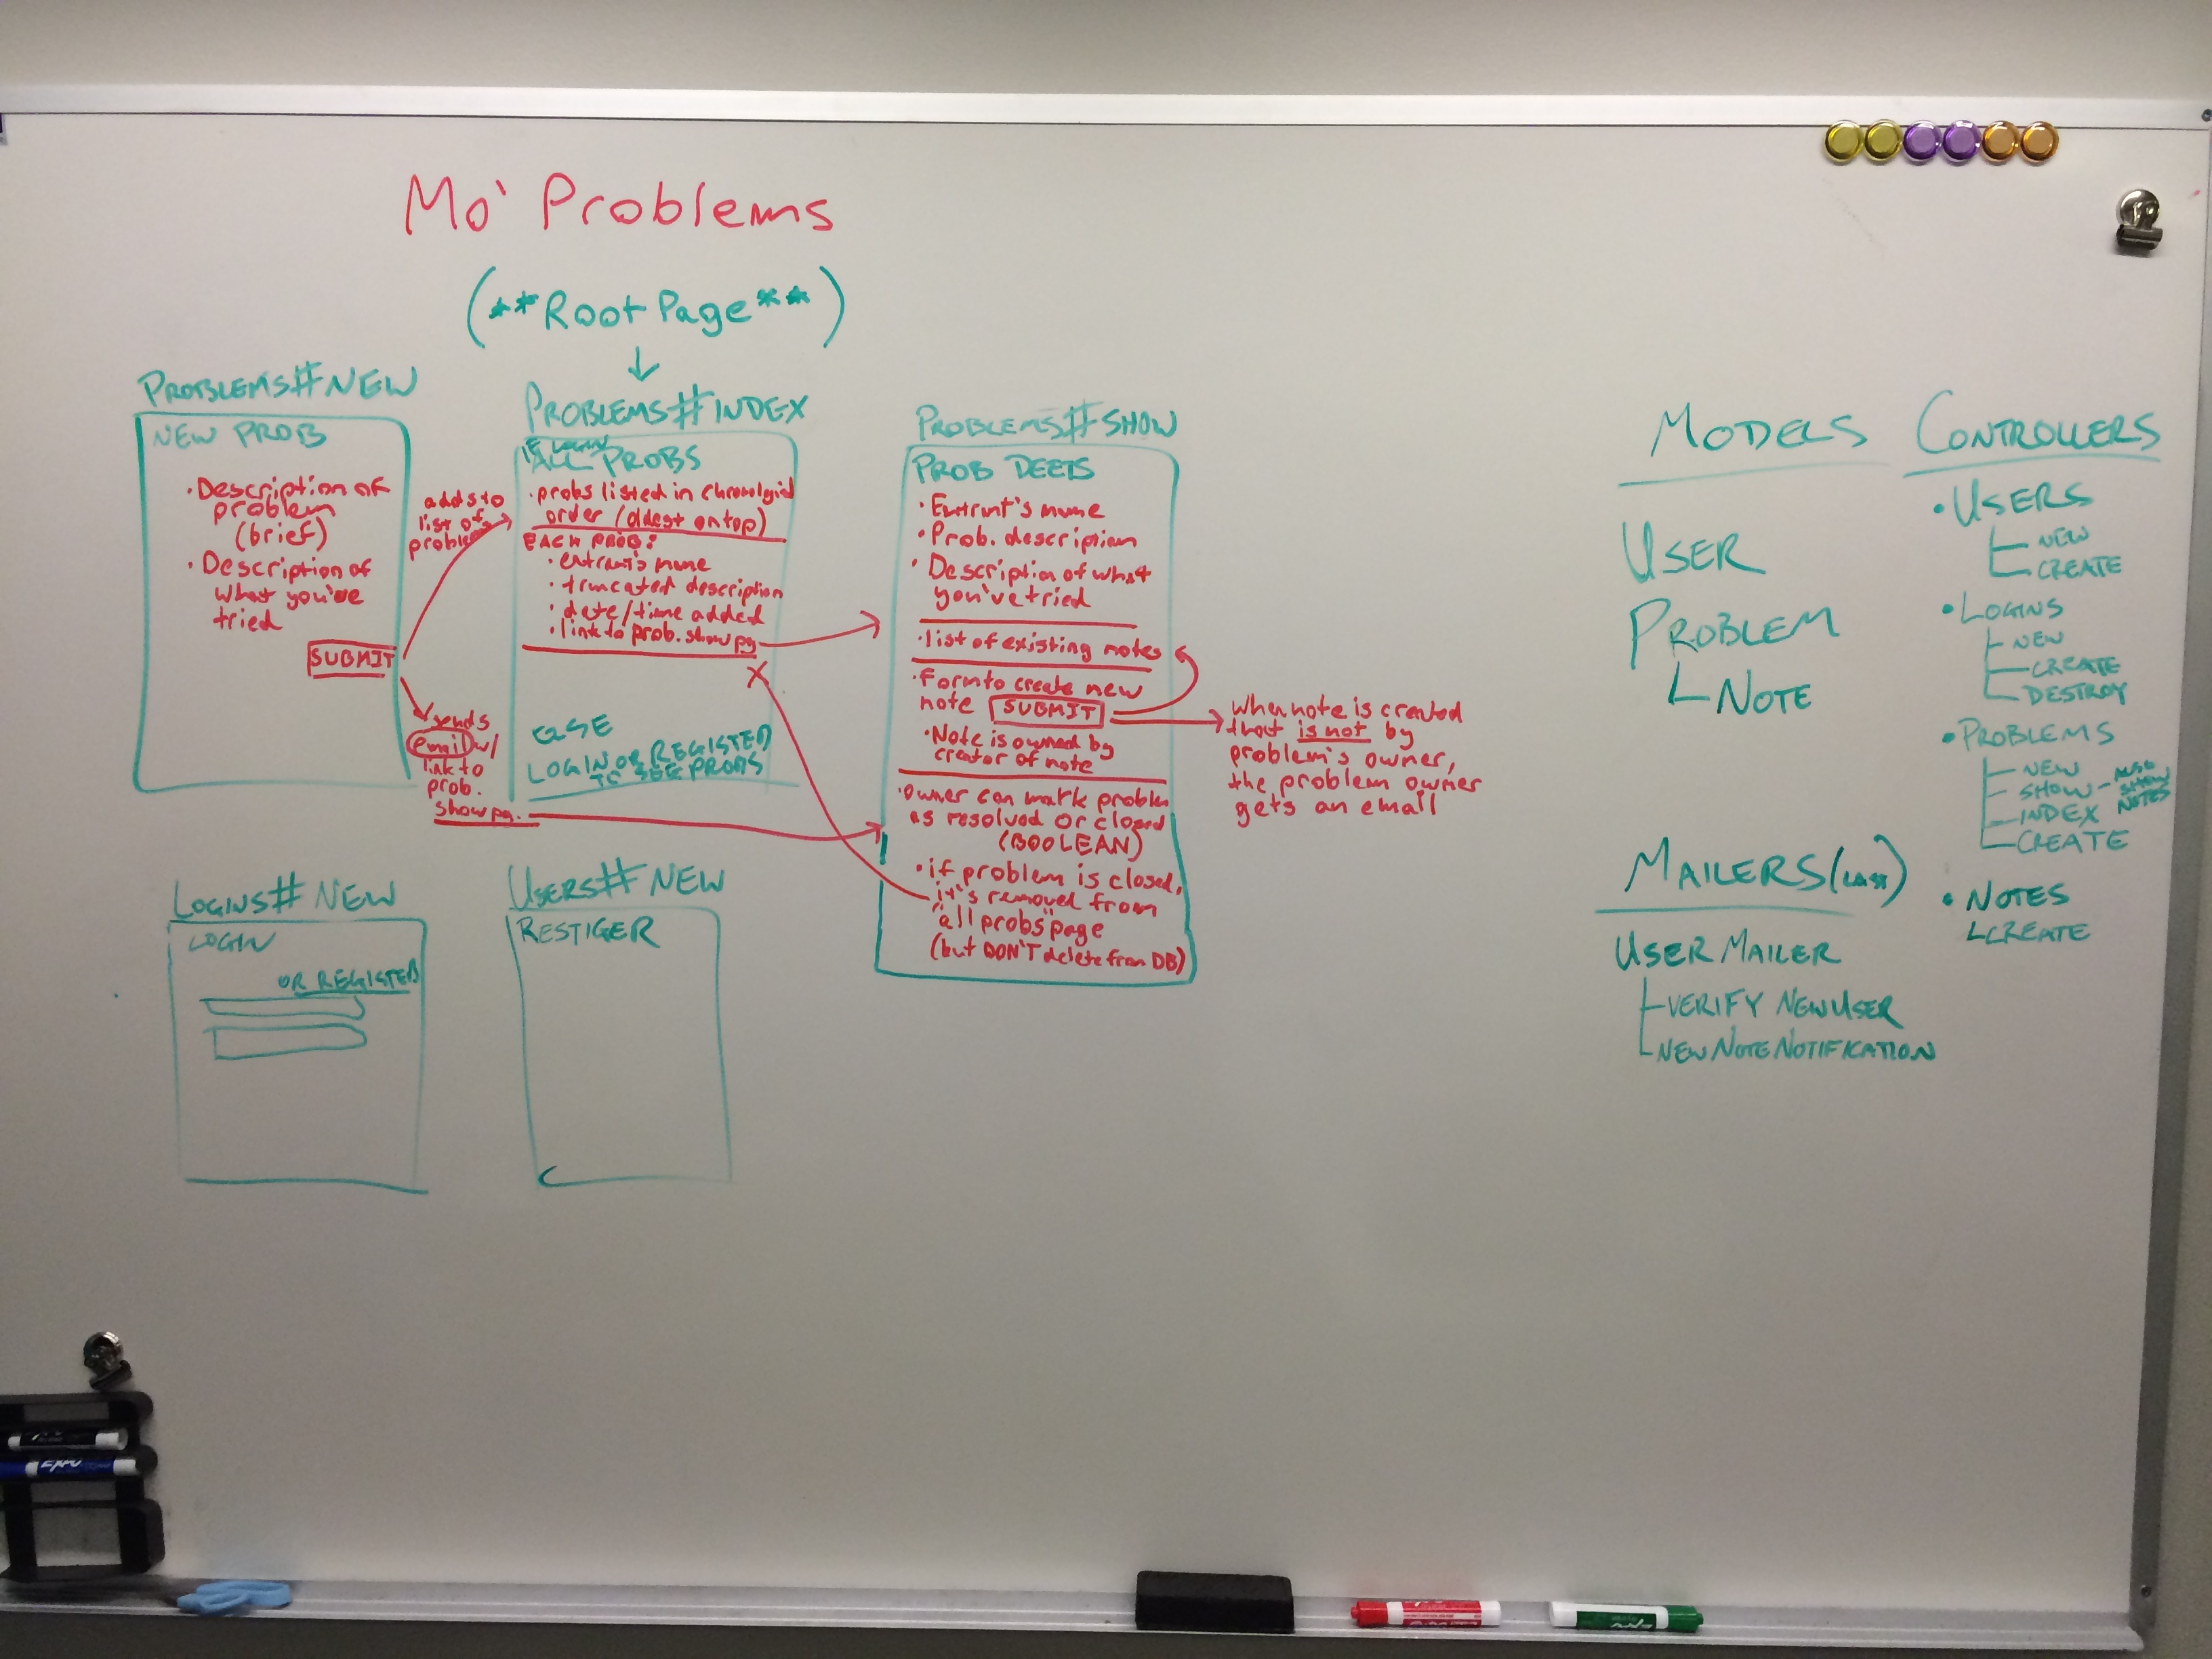 Mo' Problems
(**Root Page**)
PROBLEMS#NEW
NEW PROB
·Description of
problem
(brief)
·Description of
what you've
tried
SUBMIT
adds to
list of
problems
sends
email w/
link to
prob.
show pg.
PROBLEMS#INDEX
IF LOGIN
ALL PROBS
·probs listed in
order (oldest on top)
EACH PROB:
·entrant's name
·truncated description
·date/time added
·link to prob. show pg
X
ELSE
LOGIN OR REGISTER
TO SEE PROBS
PROBLEMS#SHOW
PROB DEETS
·Entrant's name
·Prob. description
·Description of what
you've tried
·list of existing notes
·Form to create new
note SUBMIT
·Note is owned by
creator of note
·Owner can mark problem
as resolved or closed
(BOOLEAN)
·if problem is closed,
it's removed from
"all probs" page
(but DON'T delete from DB)
When note is created
that is not by
problem's owner,
the problem owner
gets an email
LOGINS#NEW
LOGIN
OR REGISTER
USERS#NEW
RESTIGER
MODELS
USER
PROBLEM
NOTE
MAILERS (LAST)
USER MAILER
VERIFY NEW USER
NEW NOTE NOTIFICATION
CONTROLLERS
·USERS
NEW
CREATE
·LOGINS
NEW
CREATE
DESTROY
·PROBLEMS
NEW
SHOW - ALSO
SHOW
NOTES
INDEX
CREATE
·NOTES
CREATE
EXPO